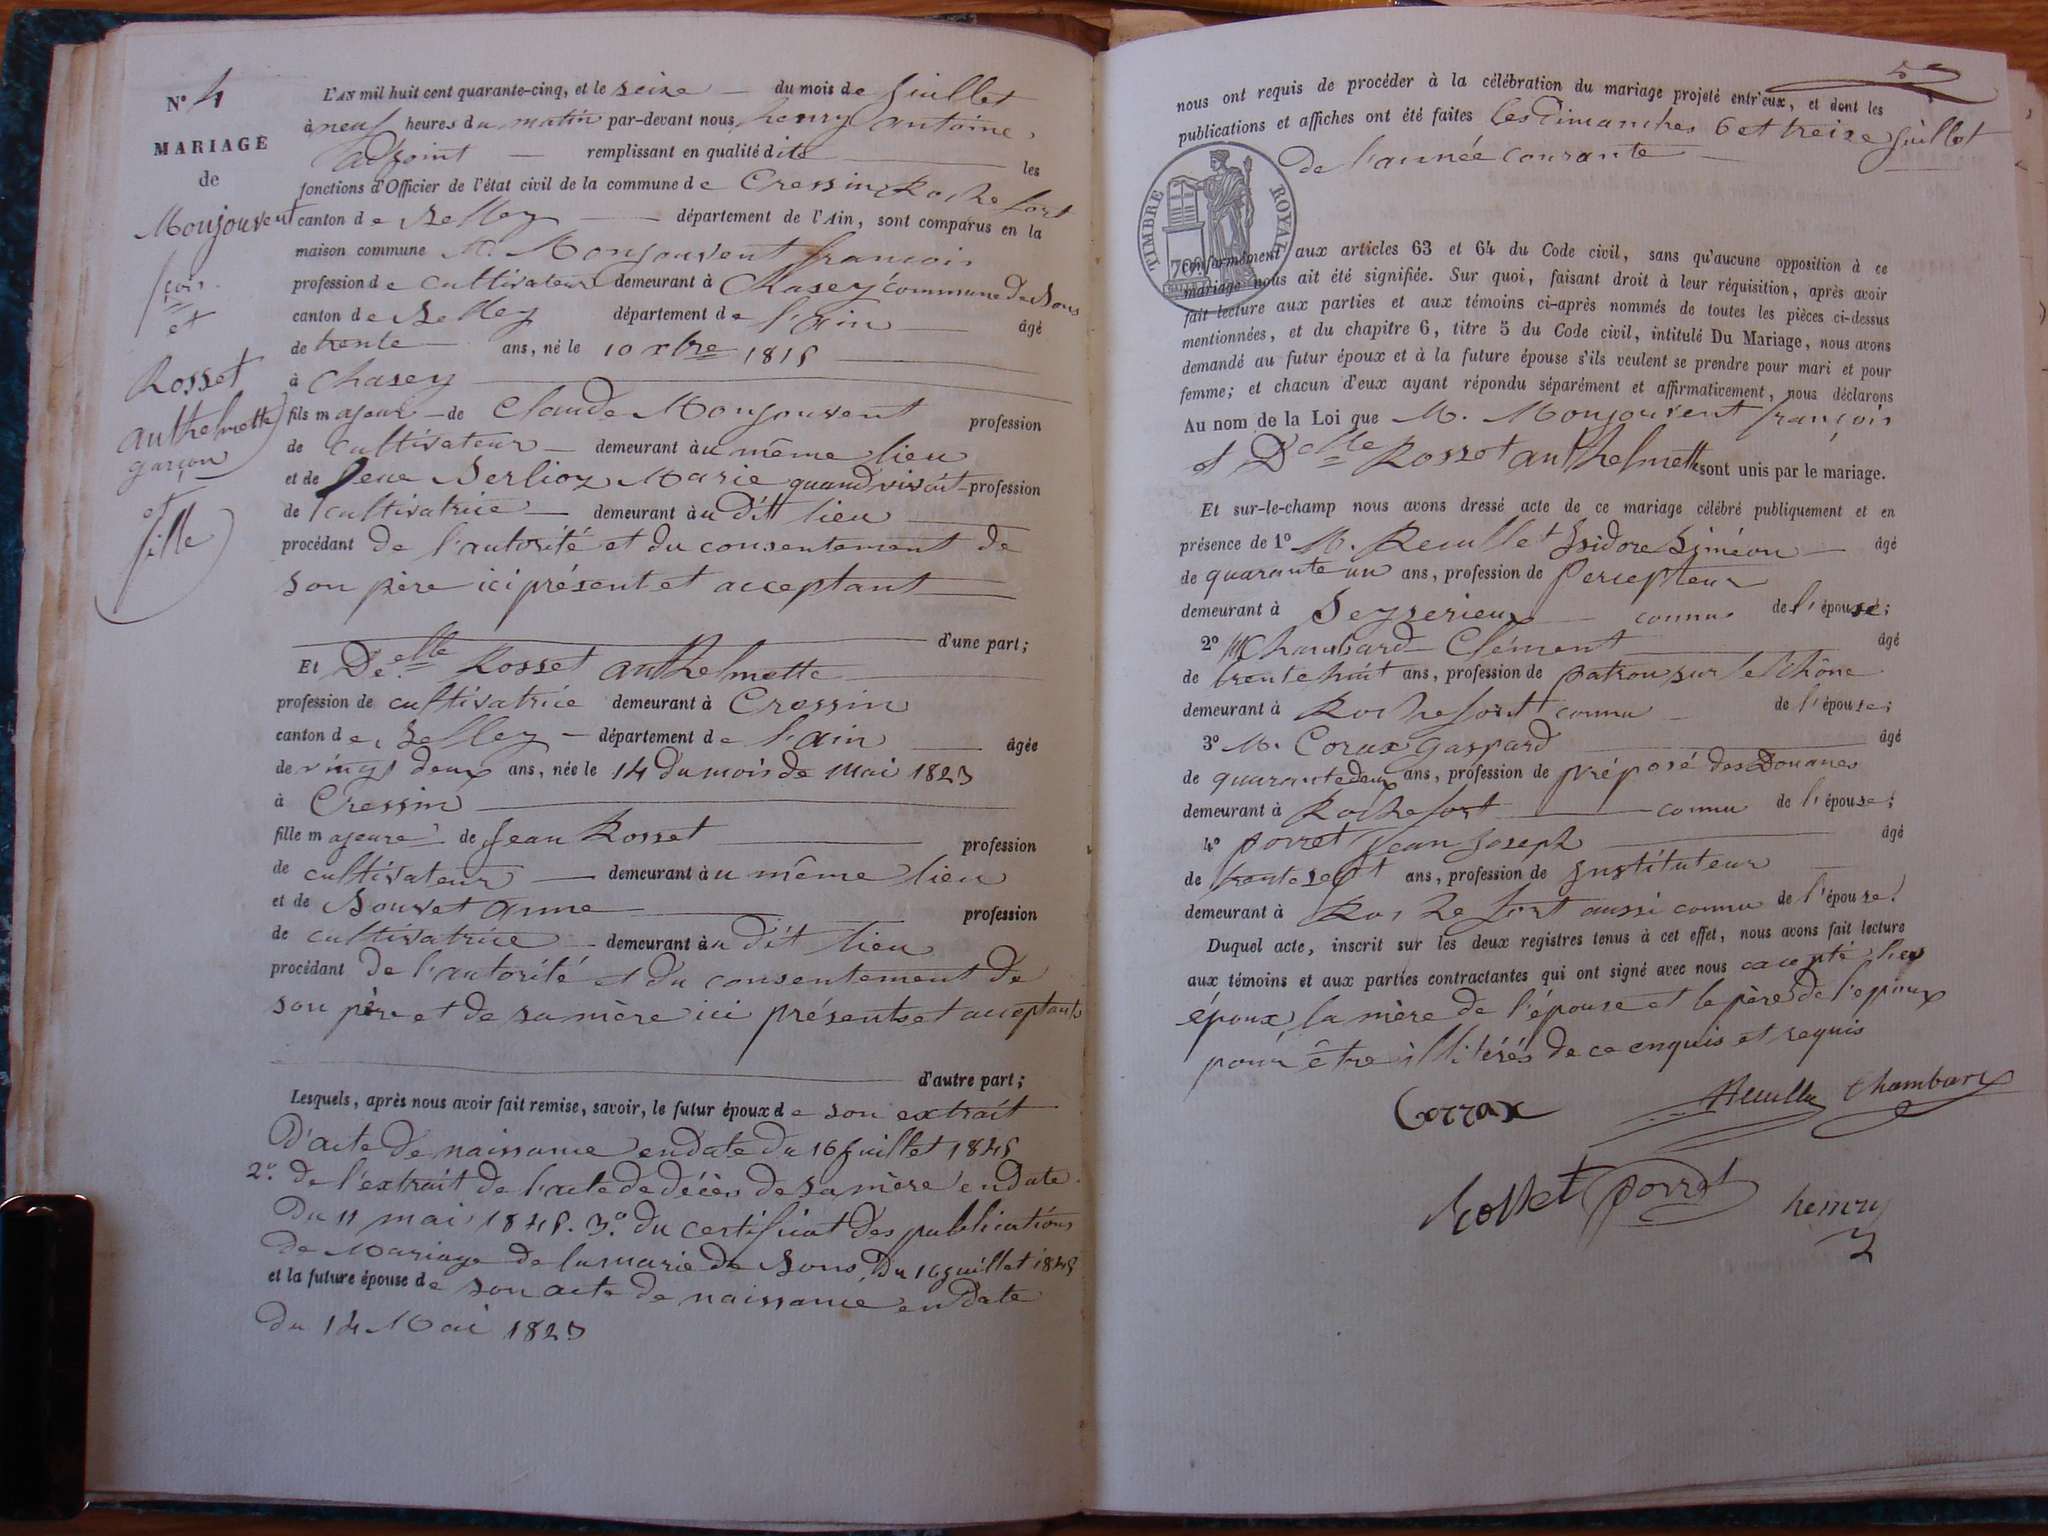 N° 4
MARIAGE
de
Monjouvent
fçois
et
Rosset
anthelmette
garçon
et
fille
L'AN mil huit cent quarante-cinq, et le seize du mois de Juillet
à neuf heures du matin par-devant nous henry antoine,
adjoint remplissant en qualité dite les
fonctions d'Officier de l'état civil de la commune de Cressin Rochefort
canton de Belley département de l'Ain, sont comparus en la
maison commune M. Monjouvent francois
profession de cultivateur demeurant à Chasey commune de Sons
canton de Belley département de l'ain âgé
de trente ans, né le 10 xbre 1815
à Chasey
fils majeur de Claude Monjouvent profession
de cultivateur demeurant au même lieu
et de feue Berlioz Marie quand vivait profession
de cultivatrice demeurant au dit lieu
procédant de l'autorité et du consentement de
son père ici présent et acceptant
d'une part;
Et Delle Rosset anthelmette
profession de cultivatrice demeurant à Cressin
canton de Belley département de l'ain âgée
de vingt deux ans, née le 14 du mois de mai 1823
à Cressin
fille majeure de Jean Rosset profession
de cultivateur demeurant au même lieu
et de Bouvet anne profession
de cultivatrice demeurant au dit lieu
procédant de l'autorité et du consentement de
son père et de sa mère ici présents et acceptants
d'autre part;
Lesquels, après nous avoir fait remise, savoir, le futur époux de son extrait
d'acte de naissance en date du 16 juillet 1845
2°. de l'extrait de l'acte de décès de sa mère en date
du 11 mai 1845. 3°. du certificat des publications
de Mariage de la marie de Sons, Du 16 juillet 1845
et la future épouse de son acte de naissance en date
du 14 Mai 1823
5
nous ont requis de procéder à la célébration du mariage projeté entr'eux, et dont les
publications et affiches ont été faites les Dimanches 6 et treize Juillet
de l'année courante
TIMBRE ROYAL
conformément aux articles 63 et 64 du Code civil, sans qu'aucune opposition à ce
mariage nous ait été signifiée. Sur quoi, faisant droit à leur réquisition, après avoir
fait lecture aux parties et aux témoins ci-après nommés de toutes les pièces ci-dessus
mentionnées, et du chapitre 6, titre 5 du Code civil, intitulé Du Mariage, nous avons
demandé au futur époux et à la future épouse s'ils veulent se prendre pour mari et pour
femme; et chacun d'eux ayant répondu séparément et affirmativement, nous déclarons
Au nom de la Loi que M. Monjouvent françois
et Delle Rosset anthelmette sont unis par le mariage.
Et sur-le-champ nous avons dressé acte de ce mariage célébré publiquement et en
présence de 1° M. Reullet Isidore Siméon âgé
de quarante un ans, profession de Percepteur
demeurant à Seyserieux connu de l'épouse;
2° M Chambard Clément âgé
de trente huit ans, profession de patron sur le Rhône
demeurant à Rochefort connu de l'épouse;
3° M. Corax Gaspard âgé
de quarante deux ans, profession de préposé des Douanes
demeurant à Rochefort connu de l'épouse;
4° porret Jean Joseph âgé
de trente sept ans, profession de Instituteur
demeurant à Rochefort aussi connu de l'épouse!
Duquel acte, inscrit sur les deux registres tenus à cet effet, nous avons fait lecture
aux témoins et aux parties contractantes qui ont signé avec nous excepté les
époux, la mère de l'épouse et le père de l'époux
pour être illitérés de ce enquis et requis
Corrax Reullet Chambard
Rosset porret henry